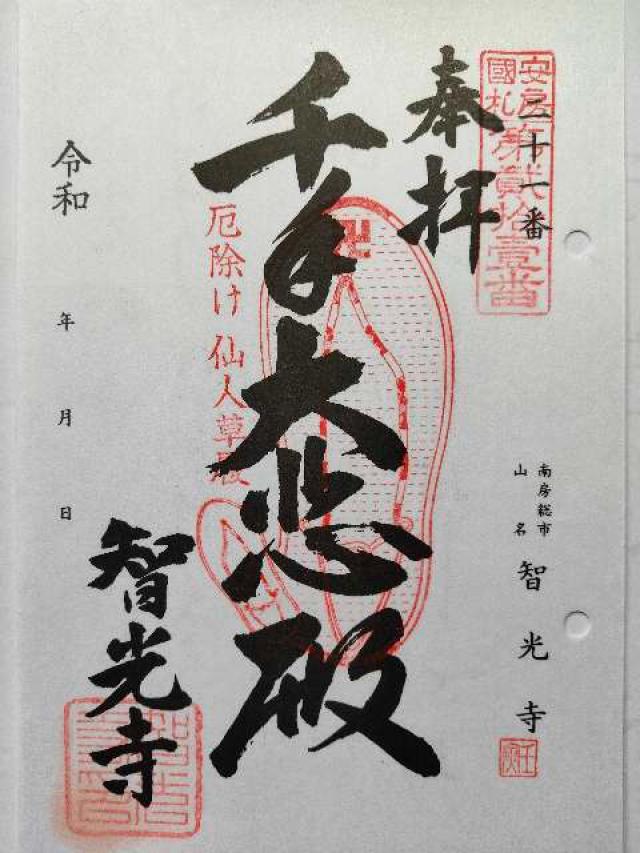 安房
國札
第貳拾壹番
二十一番
奉拝
千手大悲殿
厄除け 仙人草履
令和 年 月 日
智光寺
南房総市
山名
智光寺